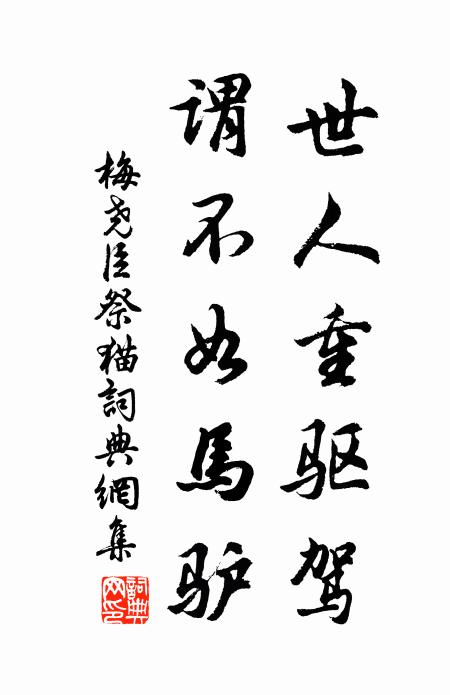 世人重驱驾
谓不如馬驴
梅尧臣祭猫詞典網集
詞典網印